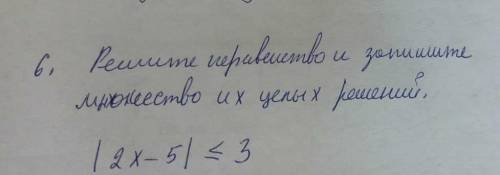 6. Решите неравенство и запишите
множество их целых решений.
|2x-5| ≤ 3